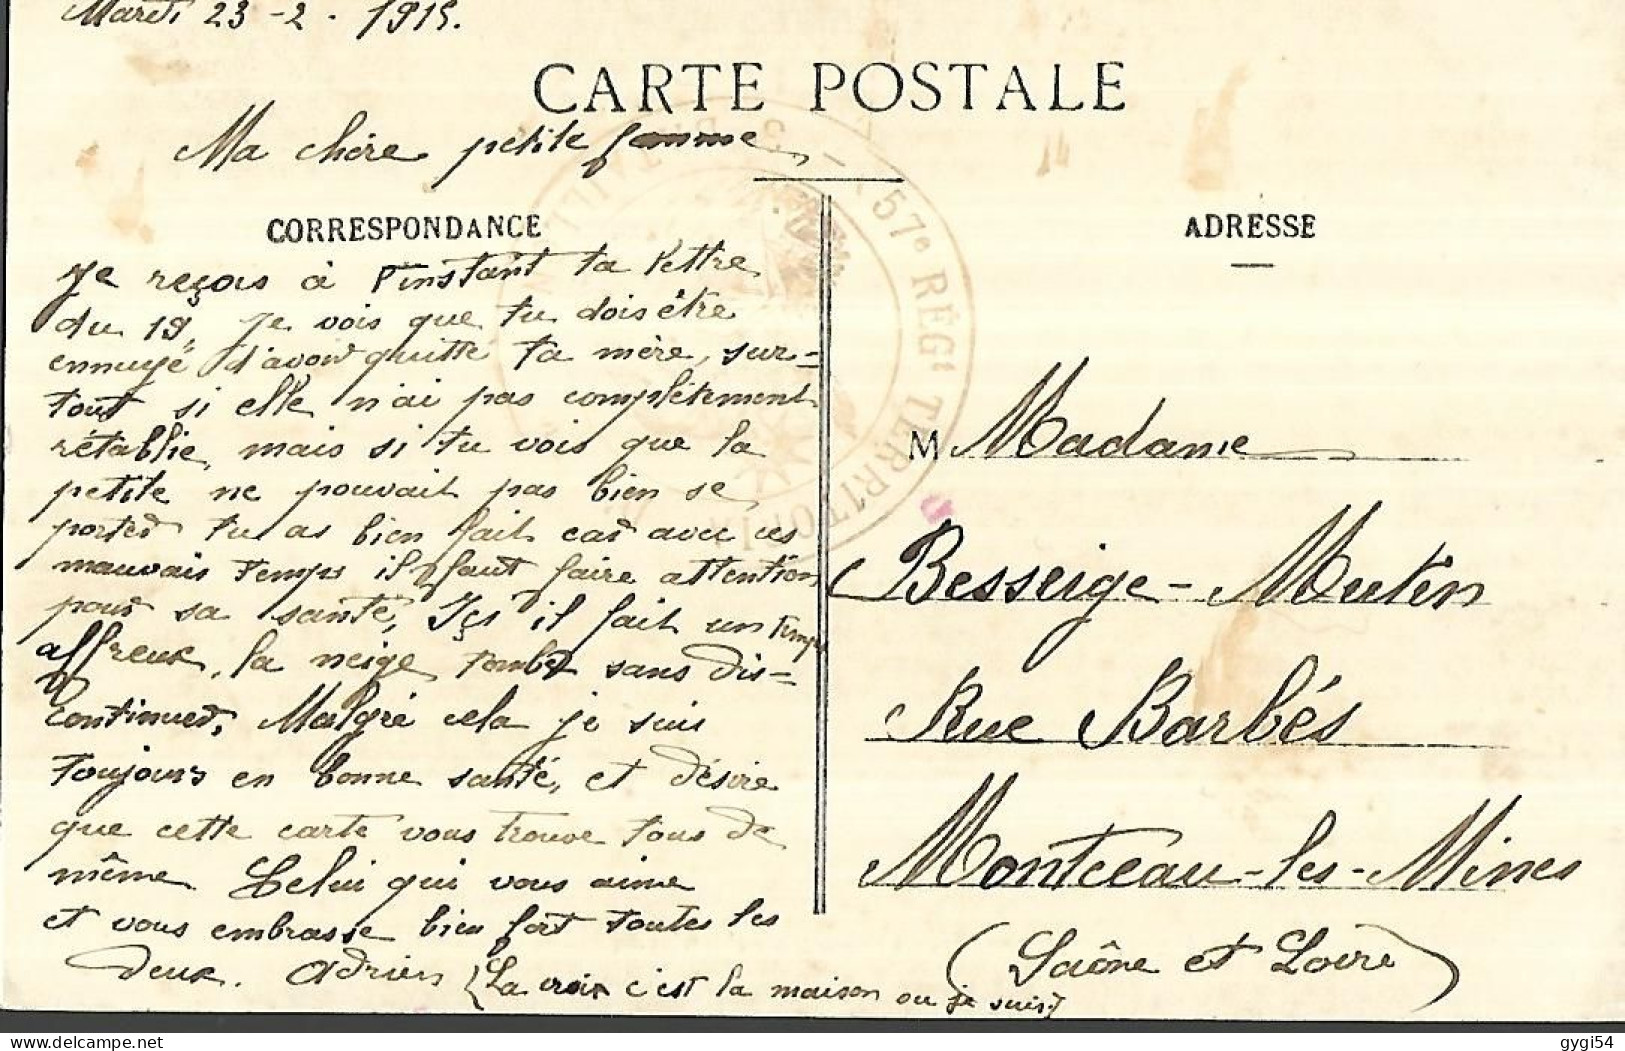 Mardi 23-2-1915.
CARTE POSTALE
Ma chère petite femme,
CORRESPONDANCE
Je reçois à l'instant ta lettre
du 19, Je vois que tu dois être
ennuyé d'avoir quitté ta mère, sur-
tout si elle n'ai pas complètement
rétablie, mais si tu vois que la
petite ne pouvait pas bien se
porter tu as bien fait car avec ces
mauvais temps il faut faire attention
pour sa santé, Içi il fait un temps
affreux, la neige tombe sans dis-
continuer, Malgré cela je suis
toujours en bonne santé, et désire
que cette carte vous trouve tous de
même. Celui qui vous aime
et vous embrasse bien fort toutes les
deux. Adrien (La croix c'est la maison ou je suis)
57e RÉGt TERRITORIAL
ADRESSE
M Madame
Besseige-Mutin
Rue Barbés
Montceau-les-Mines
(Saône et Loire)
gygi54